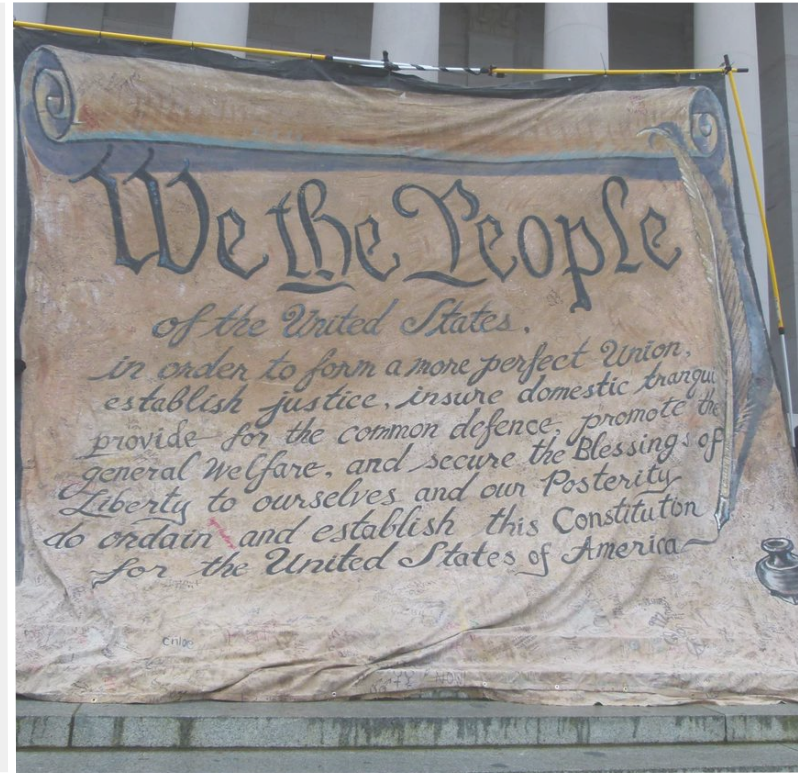 We the People
of the United States,
in order to form a more perfect Union,
establish justice, insure domestic tranqui
provide for the common defence, promote the
general Welfare, and secure the Blessings of
Liberty to ourselves and our Posterity
do ordain and establish this Constitution
for the United States of America